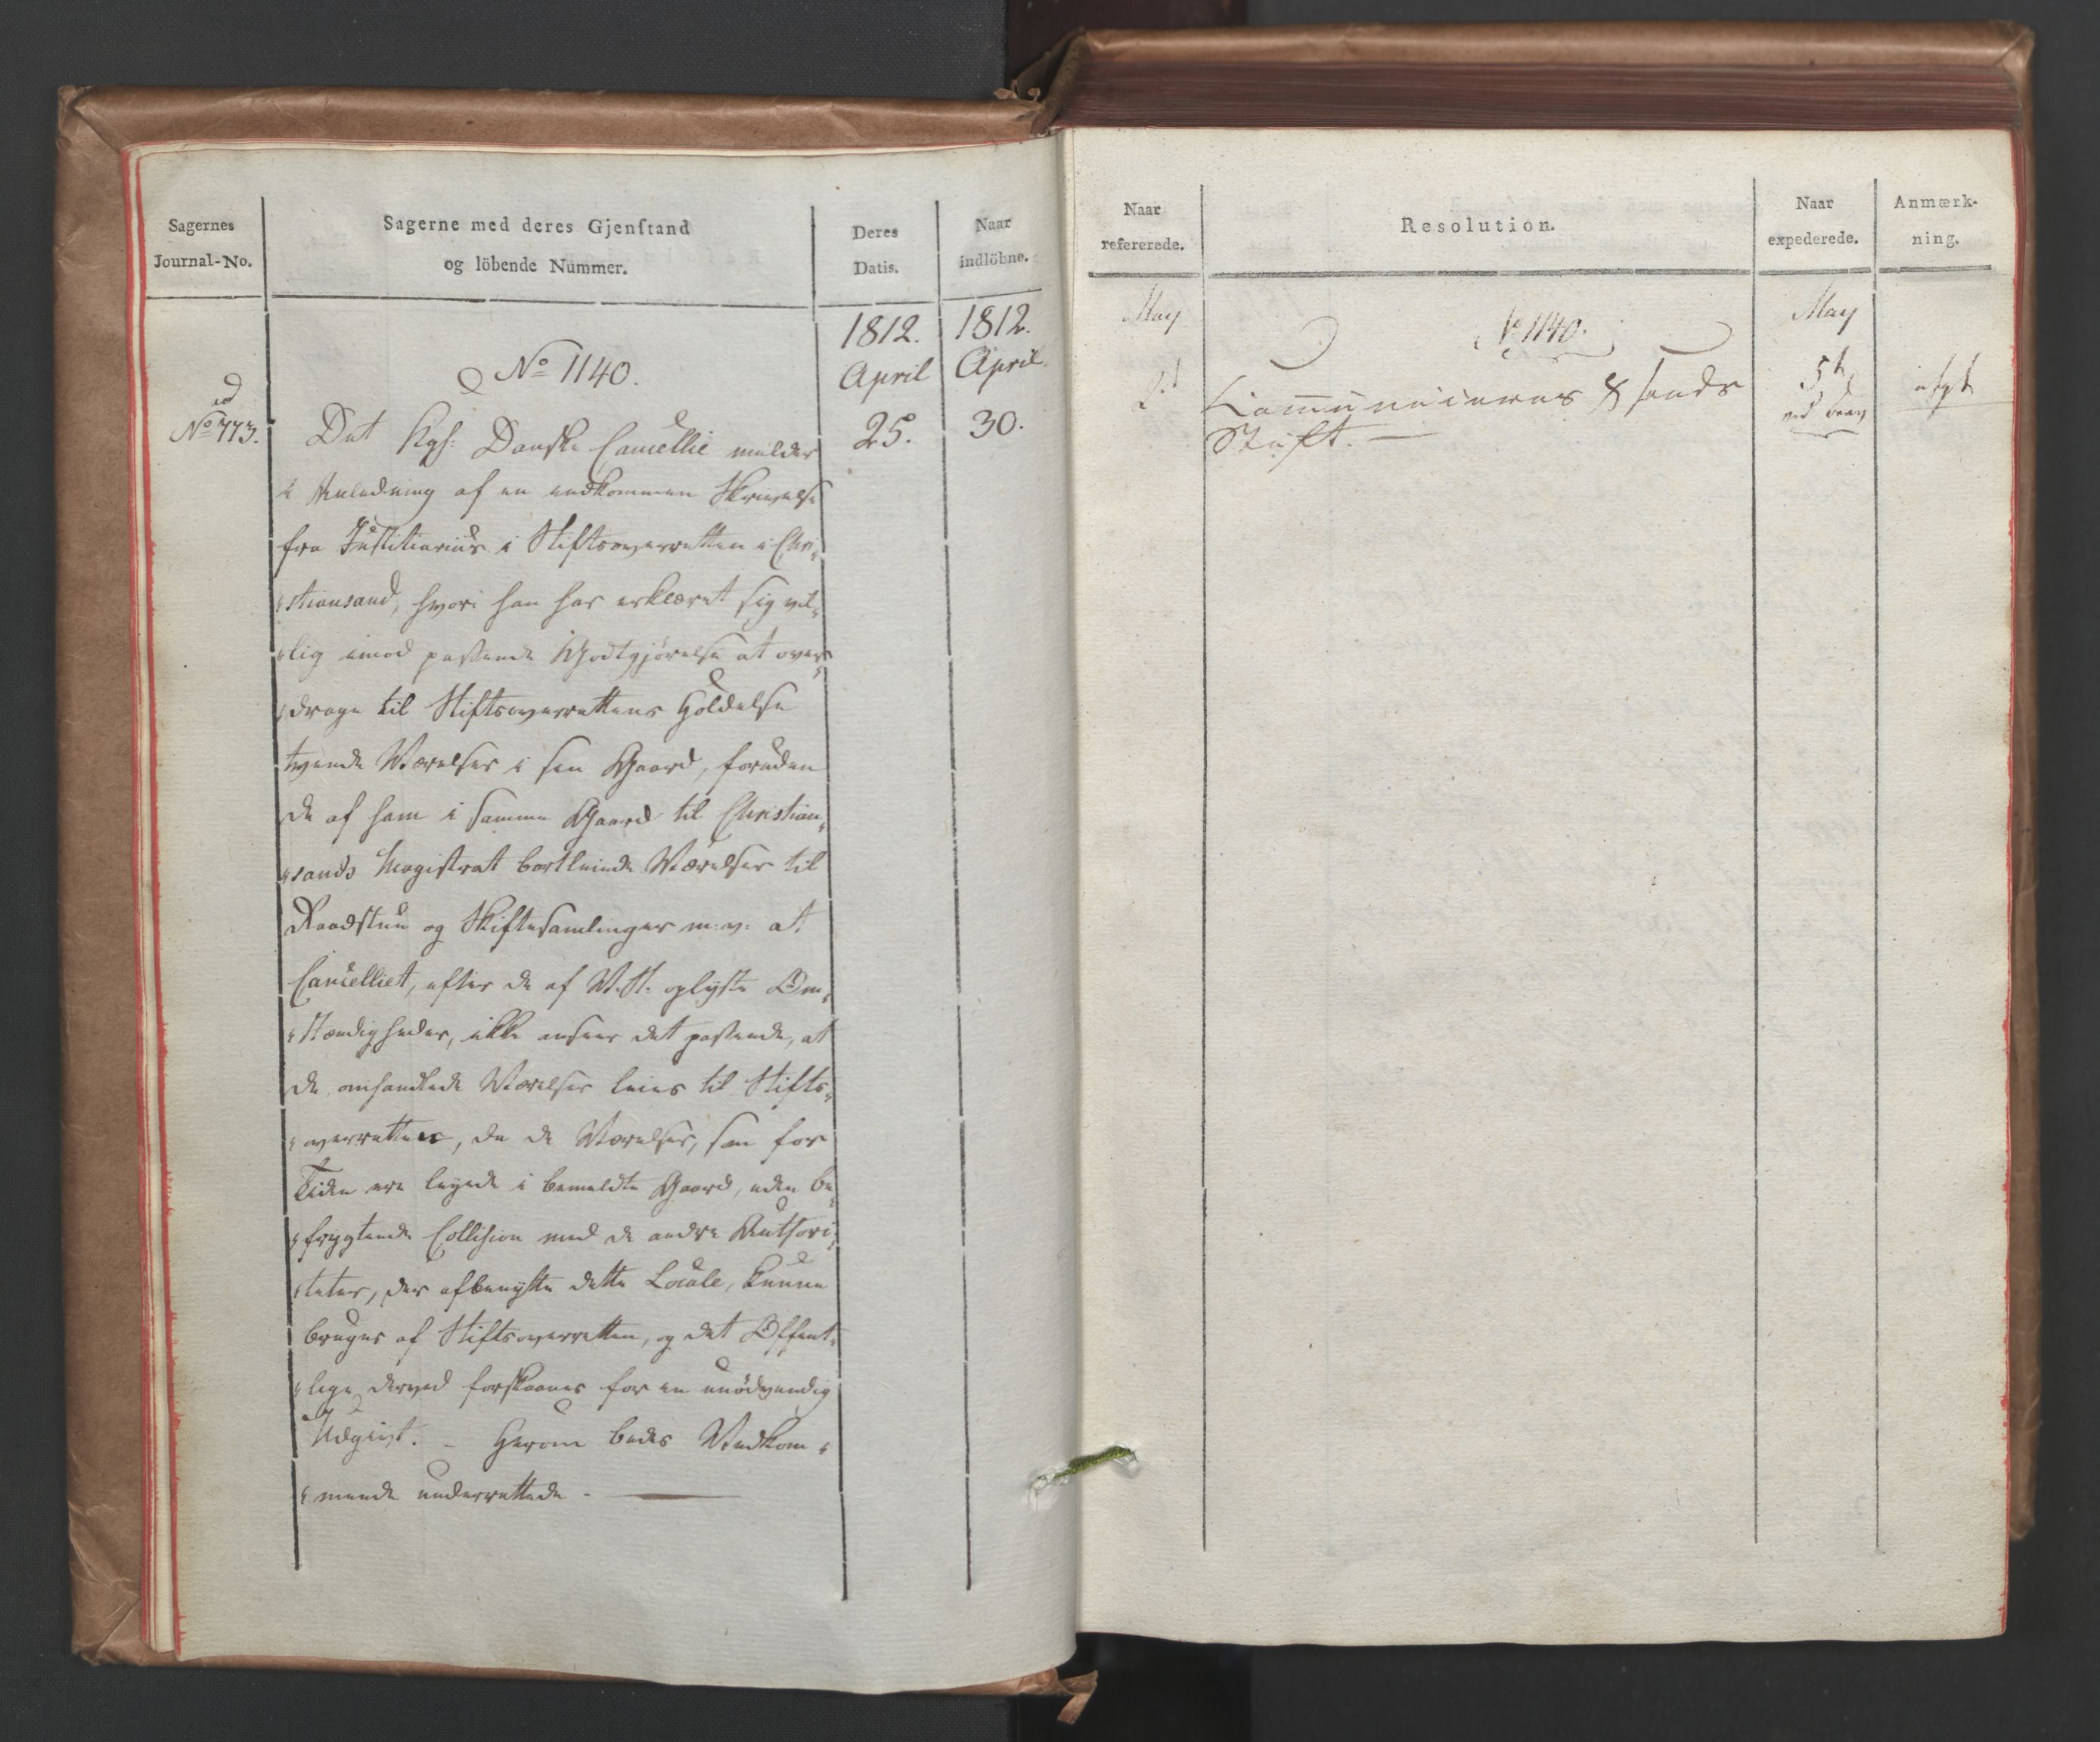 Sagernes
Journal-No.
Sagerne med deres Gjenstand
og löbende Nummer.
Deres
Datis.
Naar
indlöbne.
1812. 1812.
April April
No 1140.
ad
No 773.
25. 30.
Det Kgl: Danske Cancellie melder
i Anledning af en indkommen Skrivelse
fra Justitiarius i Stiftsoverretten i Chri-
stiansand, hvori han har erklæret sig vil-
lig imod passende Godtgjørelse at over-
drage til Stiftsoverrettens Holdelse
tvende Værelser i sin Gaard, foruden
de af ham i samme Gaard til Christian-
sands Magistrat bortleiede Værelser til
Raadstue og Skiftesamlinger m: v: at
Cancelliet, efter de af V. St. oplyste Om-
stændigheder, ikke ansees det passende, at
de omhandlede Værelser leies til Stifts-
overretten, da de Værelser, som for
Tiden ere leyede i bemeldte Gaard, uden be-
frygtende Collision med de andre Authori-
teter, der afbenytte dette Locale, kunne
bruges af Stiftsoverretten, og det Offent-
lige derved forskaanes for en unödvendig
Udgivt. – Herom bedes Vedkom-
mende underrettede. –
Naar
refererede.
Resolution.
Naar
expederede.
Anmærk-
ning.
May
May
No 1140.
Communiceres Xsands
Stift. –
5t